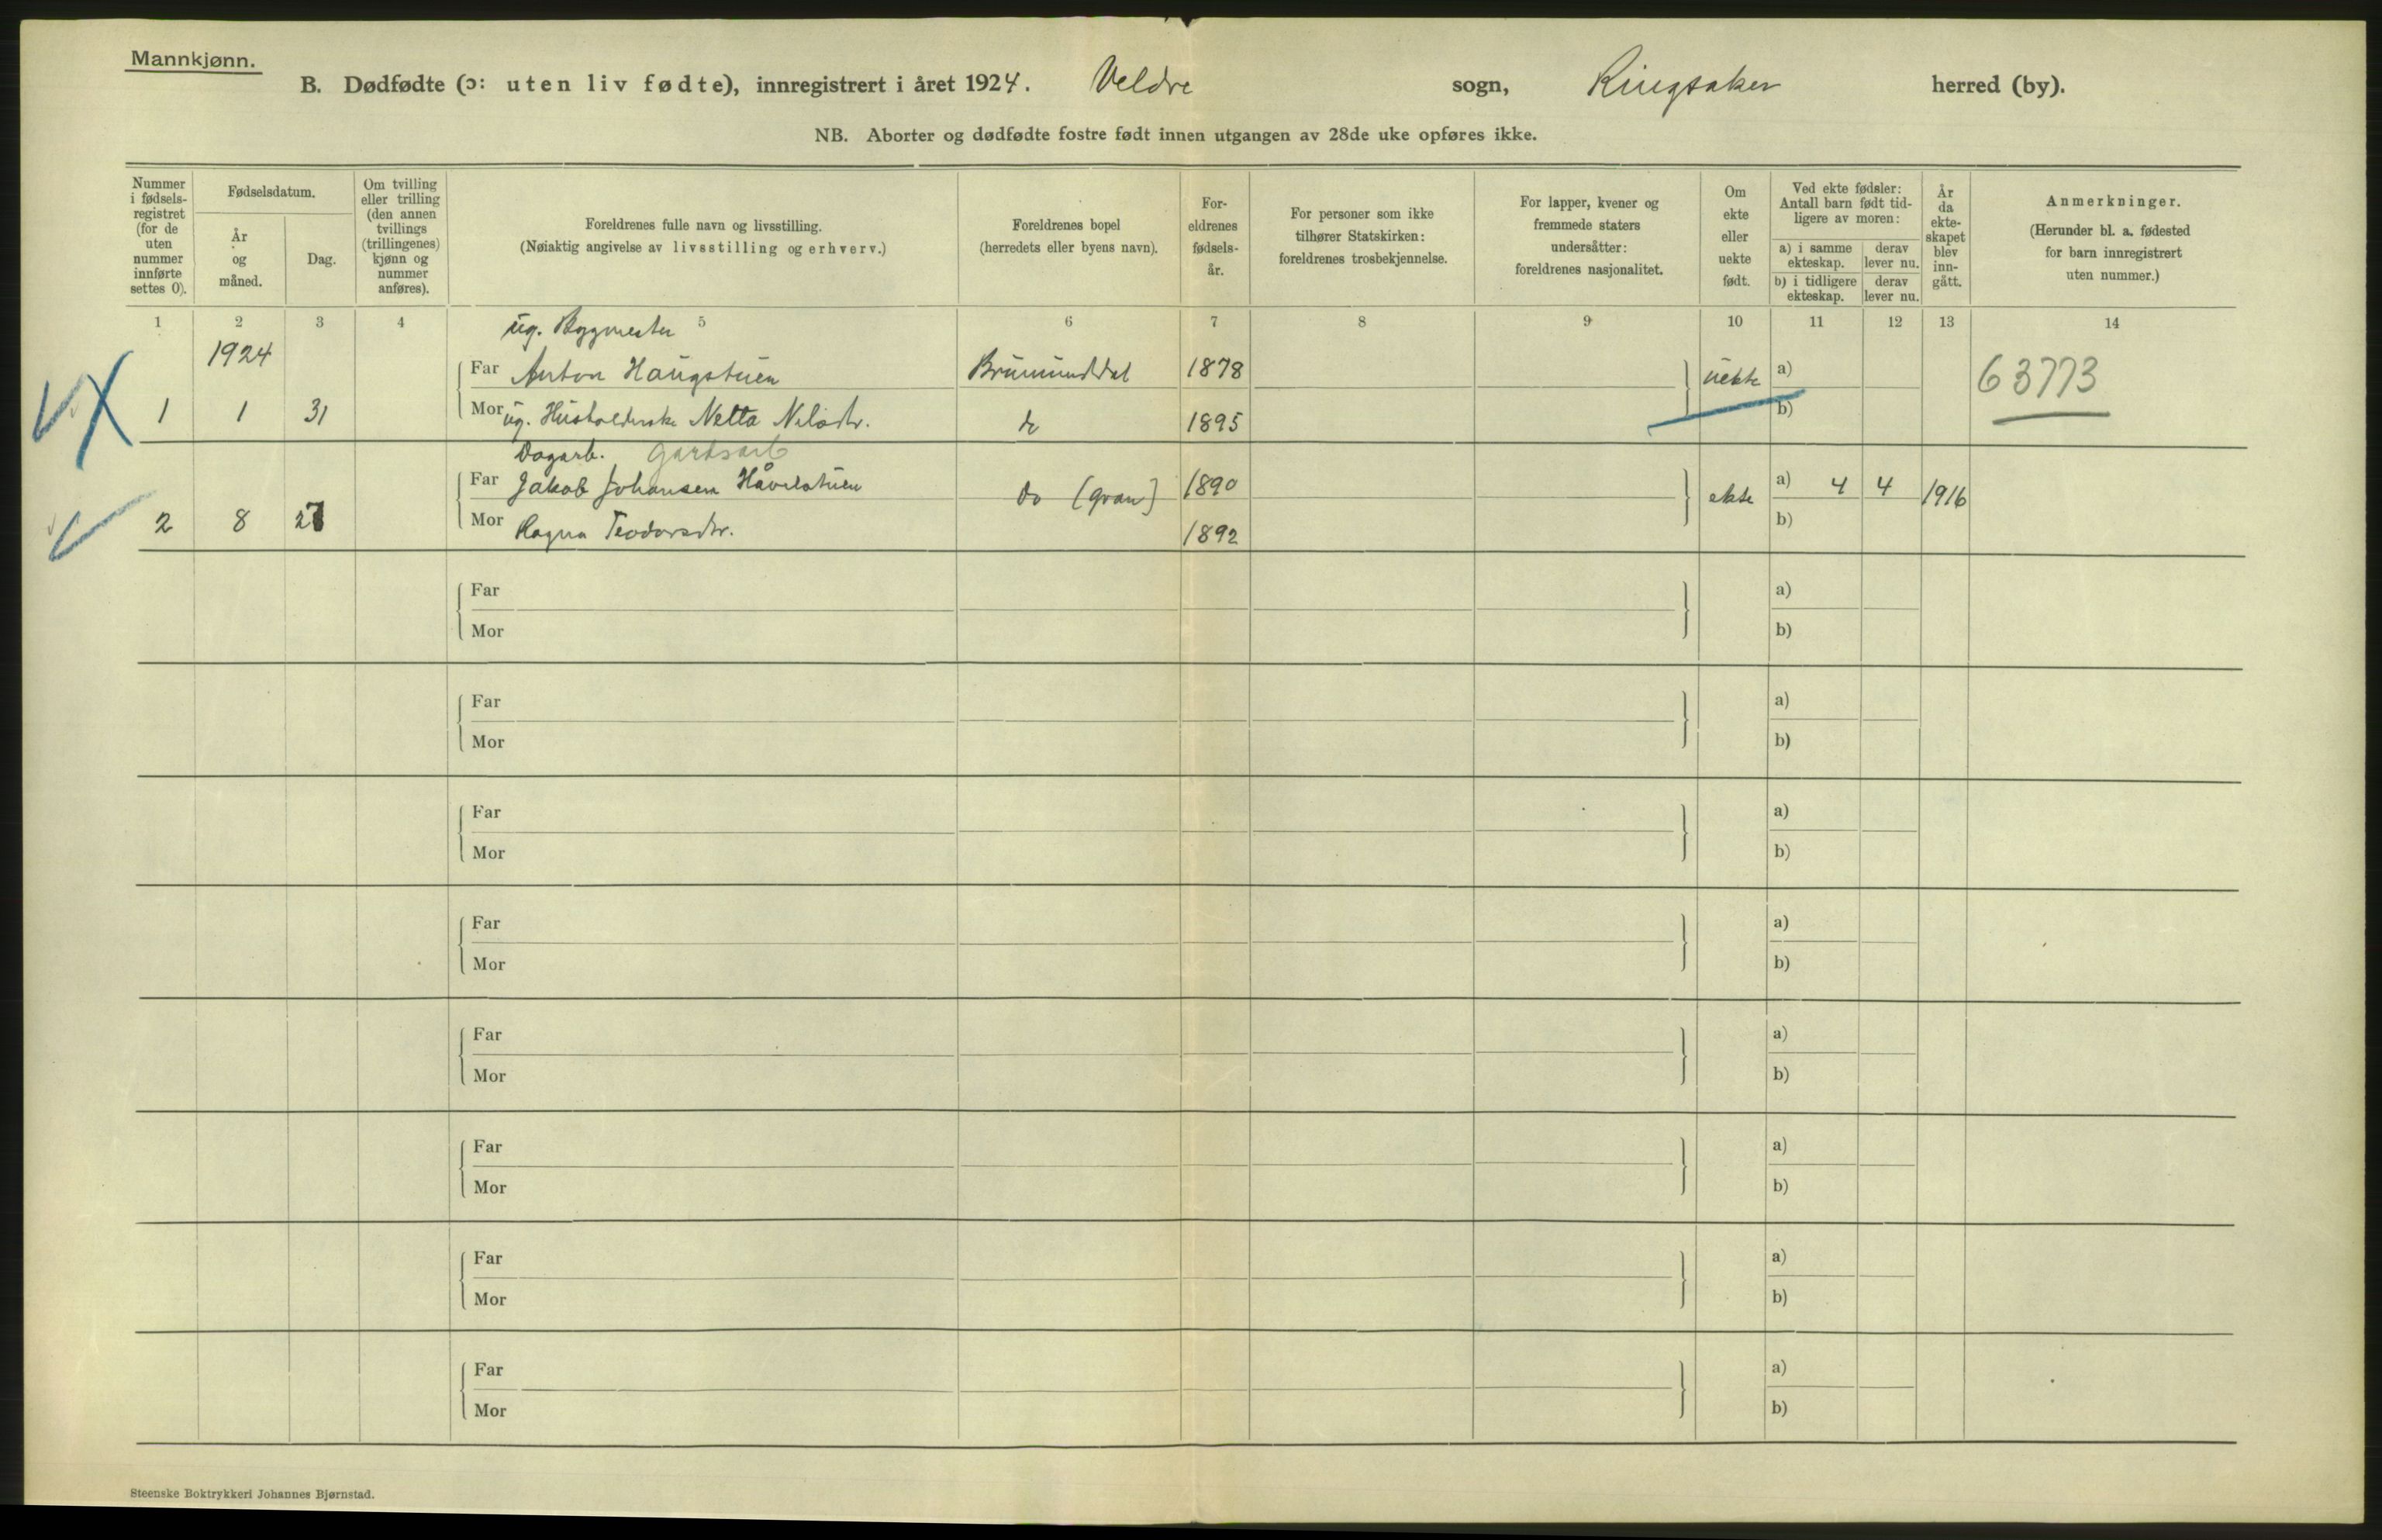 Mannkjønn.
B. Dødfødte (ɔ: uten liv fødte), innregistrert i året 1924. Veldre sogn, Ringsaker herred (by).
NB. Aborter og dødfødte fostre født innen utgangen av 28de uke opføres ikke.
Nummer i fødselsregistret (for de uten nummer innførte settes 0).
Fødselsdatum.
År og måned.
Dag.
Om tvilling eller trilling (den annen tvillings (trillingenes) kjønn og nummer anføres).
Foreldrenes fulle navn og livsstilling.
(Nøiaktig angivelse av livsstilling og erhverv.)
Foreldrenes bopel
(herredets eller byens navn).
Foreldrenes fødselsår.
For personer som ikke tilhører Statskirken: foreldrenes trosbekjennelse.
For lapper, kvener og fremmede staters undersåtter: foreldrenes nasjonalitet.
Om ekte eller uekte født.
Ved ekte fødsler: Antall barn født tidligere av moren:
a) i samme ekteskap.
derav lever nu.
b) i tidligere ekteskap.
derav lever nu.
År da ekteskapet blev inngått.
Anmerkninger.
(Herunder bl. a. fødested for barn innregistrert uten nummer.)
1 2 3 4 5 6 7 8 9 10 11 12 13 14
ug. Byggmester
1924
Far Anton Haugstuen Brumunddal 1878 uekte a) 63773
1 1 31 Mor ug. Husholderske Netta Nilsdtr. do 1895 b)
Dagarb. Gårdsarb
Far Jakob Johansen Håvelstuen do (gran) 1890 ekte a) 4 4 1916
2 8 27 Mor Ragna Teodorsdtr. 1892 b)
Far a)
Mor b)
Far a)
Mor b)
Far a)
Mor b)
Far a)
Mor b)
Far a)
Mor b)
Far a)
Mor b)
Far a)
Mor b)
Far a)
Mor b)
Steenske Boktrykkeri Johannes Bjørnstad.